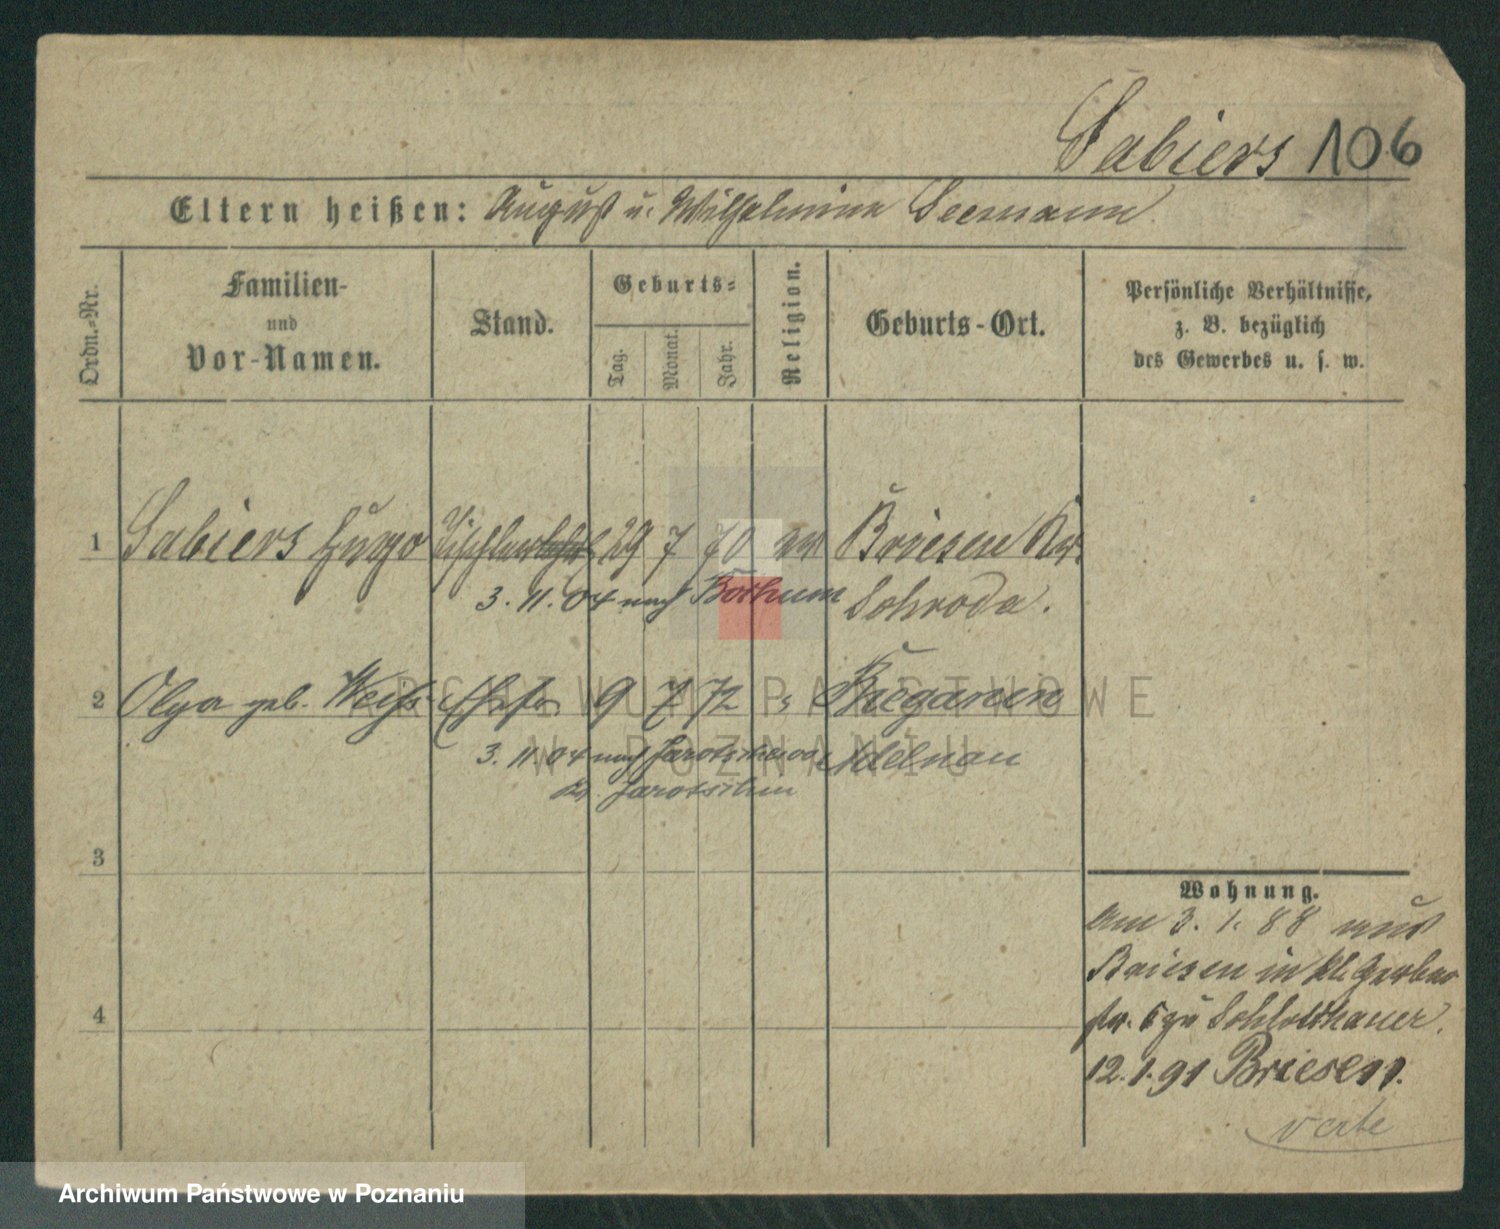 Sabiers 106
Eltern heißen: August u. Wilhelmine Seemann
Ordn.-Nr.
Familien-
und
Vor-Namen.
Stand.
Geburts-
Tag.
Monat.
Jahr.
Religion.
Geburts-Ort.
Persönliche Verhältnisse,
z. B. bezüglich
des Gewerbes u. s. w.
1 Sabiers Hugo Tischler 29 7 70 ev Briesen Kr.
3. 11. 04 nach Bochum Schroda.
2 Olga geb. Weiß Ehefr. 9 7 72
3. 11. 04 nach Jarotschin Adelnau
Kr. Jarotschin
3
4
Wohnung.
Am 3. 1. 88 aus
Briesen in kl. Gerber
str. 5 zu Schlotthauer.
12. 1. 91 Briesen.
verte
ARCHIWUM PAŃSTWOWE
W POZNANIU
Archiwum Państwowe w Poznaniu